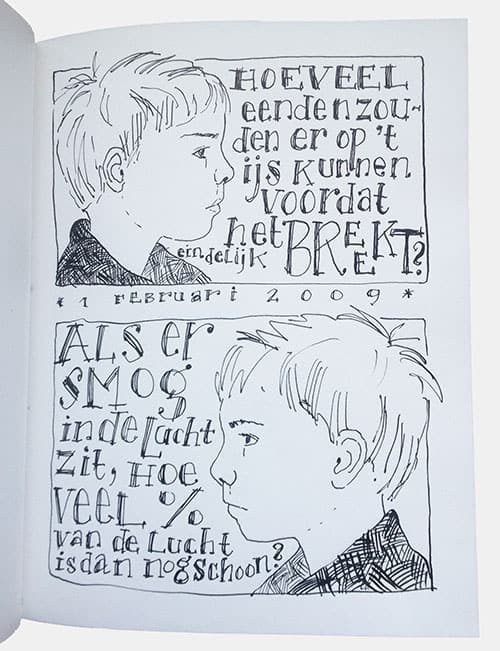 HOEVEEL
eenden zou-
den er op 't
ijs kunnen
voordat
het eindelijk BREEKT?
* 1 februari 2009 *
ALS er
SMOG
in de Lucht
zit, HOE
VEEL %
van de Lucht
is dan nog schoon?